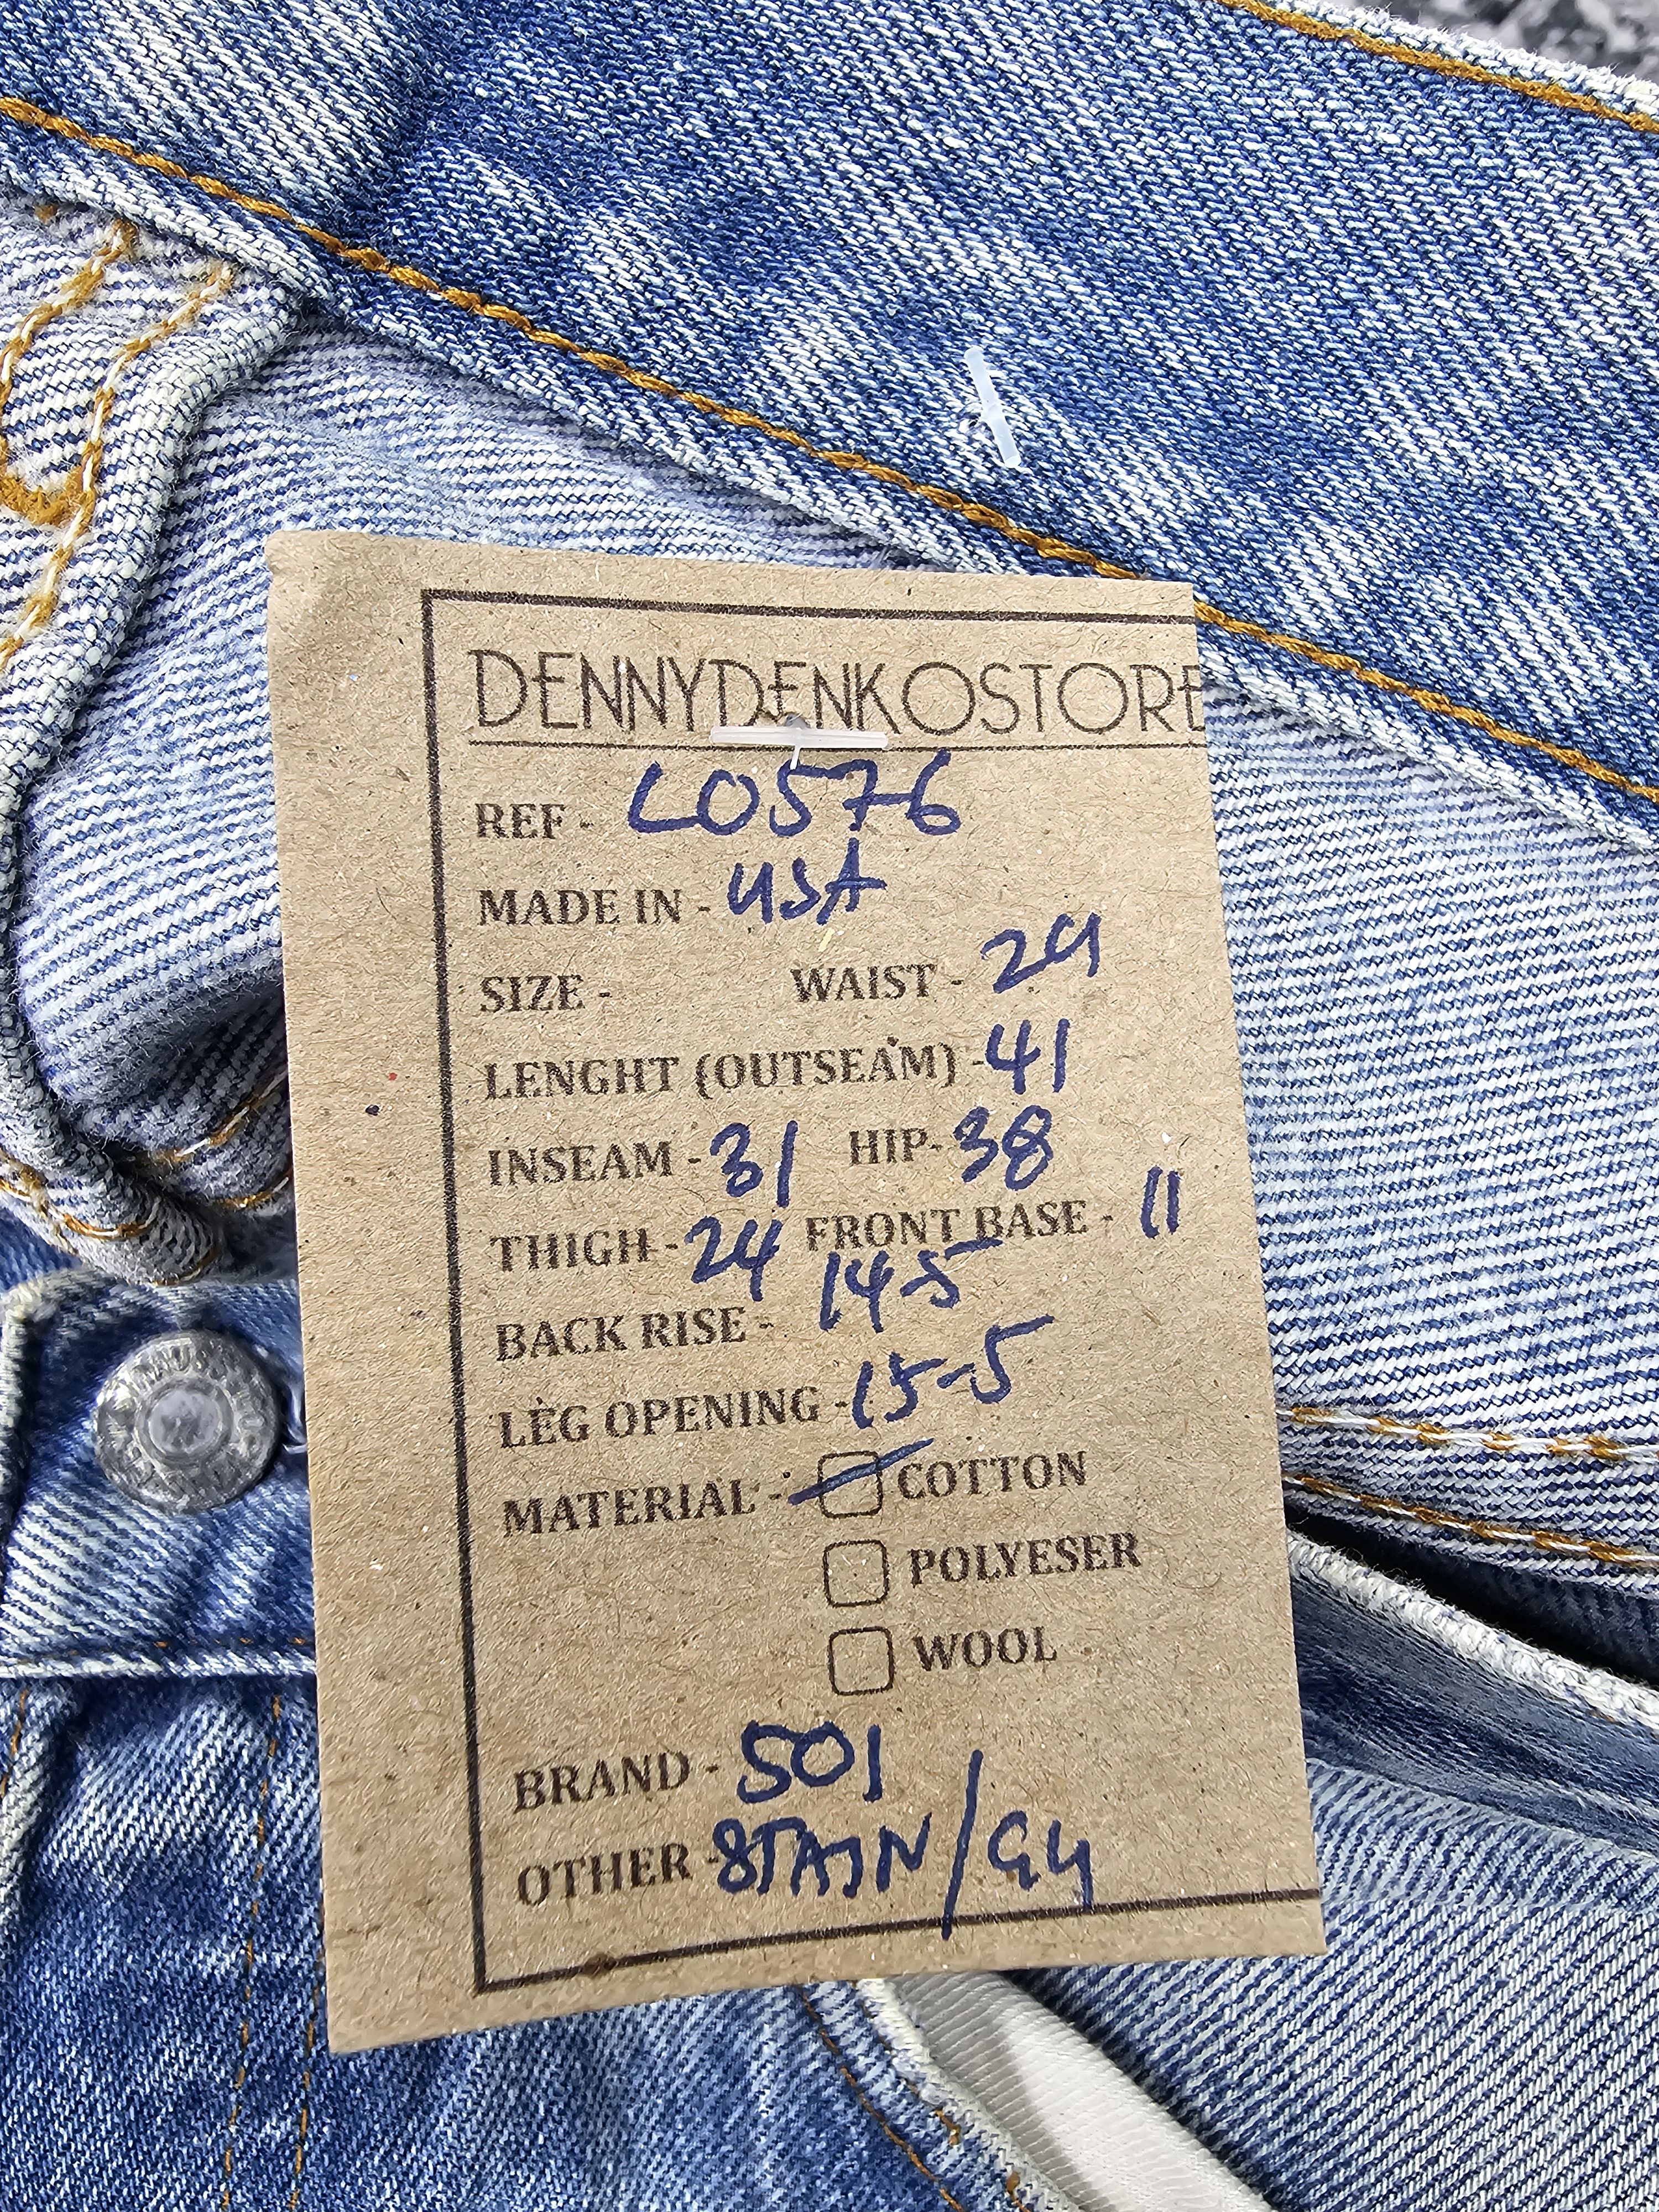 DENNYDENKOSTORE
REF - L0576
MADE IN - USA
SIZE - WAIST - 29
LENGHT (OUTSEAM) - 41
INSEAM - 31 HIP - 38
THIGH - 24 FRONT BASE - 11
BACK RISE - 14-5
LEG OPENING - 15-5
MATERIAL - COTTON
POLYESER
WOOL
BRAND - 501
OTHER - STAIN /